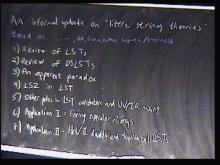 An informal update on "little string theories"
Based on
1) Review of LSTs
2) Review of DSLSTs
3) An apparent paradox
4) LSZ in LST
5) Other poles in LST correlators and UV/IR mixing
6) Application I -
7) Application II - Het/II duality and